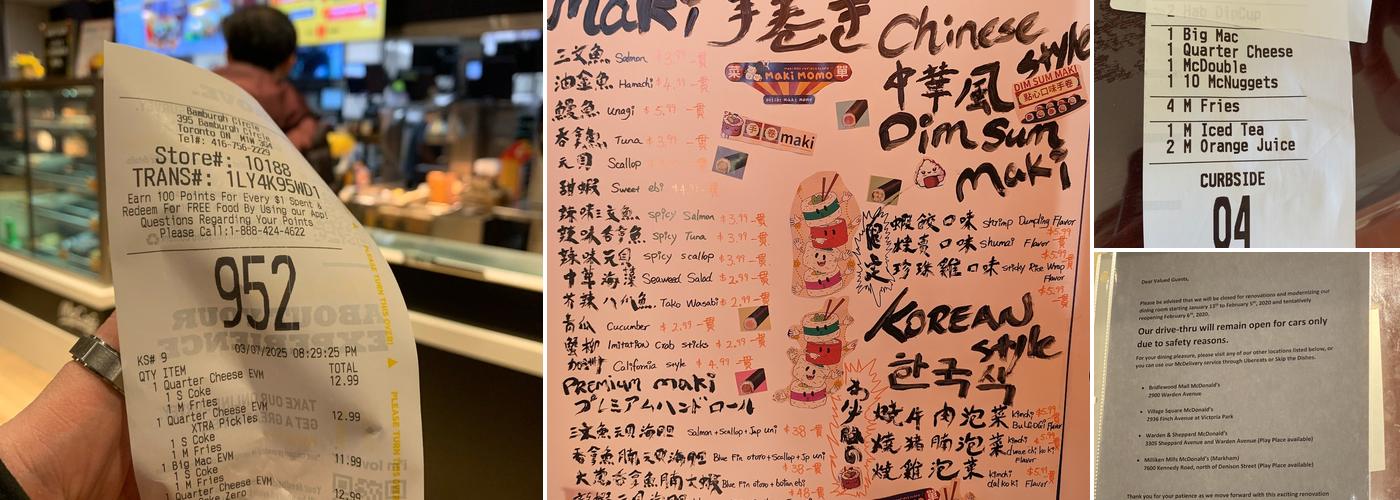 Bamburgh Circle
395 Bamburgh Circle
Toronto ON M1W 3G4
Tel#: 416-756-2229
Store#: 10188
TRANS#: 1LY4K95WD1
Earn 100 Points For Every $1 Spent &
Redeem For FREE Food By Using our App!
Questions Regarding Your Points
Please Call:1-888-424-4622
952
KS# 9 03/07/2025 08:29:25 PM
QTY ITEM TOTAL
1 Quarter Cheese EVM 12.99
1 S Coke
1 M Fries
1 Quarter Cheese EVM 12.99
XTRA Pickles
1 S Coke
1 M Fries
1 Big Mac EVM 11.99
1 S Coke
12.99
PLEASE TURN THIS OVER!
Maki 手巻き
三文魚 Salmon $3.99 一貫
油金魚 Hamachi $4.99 一貫
鰻魚 Unagi $5.99 一貫
吞拿魚 Tuna $3.99 一貫
元貝 Scallop
甜蝦 Sweet ebi $4.99
辣味三文魚 Spicy Salmon $3.99 一貫
辣味吞拿魚 Spicy Tuna $3.99 一貫
辣味元貝 Spicy scallop $3.99 一貫
中華海藻 Seaweed Salad $2.99 一貫
芥辣八爪魚 Tako Wasabi $2.99 一貫
青瓜 Cucumber $2.99 一貫
蟹柳 Imitation Crab sticks $2.99 一貫
加州 California style $4.99 一貫
Premium maki
プレミアムハンドロール
三文魚元貝海胆 Salmon+Scallop+Jap uni $38 一貫
吞拿魚腩元貝海胆 Blue Fin otoro+Scallop+Jp uni $38 一貫
大葱吞拿魚腩大蝦 Blue Fin otoro+botan ebi $48 一貫
菜 Maki Momo 單
手巻 maki
Chinese style
中華風
DIM SUM MAKI
點心口味手卷
Dim sum Maki
限定
蝦餃口味 shrimp Dumpling Flavor $5.99 一貫
燒賣口味 shumai Flavor $5.99 一貫
珍珠雞口味 sticky Rice Wrap Flavor $5.99 一貫
KOREAN style
한국식
燒牛肉泡菜 kimchi Bulgogi Flavor $5.99
燒豬腩泡菜 kimchi Flavor $5.99
燒雞泡菜 kimchi dal koki Flavor $5.99
2 Hab DipCup
1 Big Mac
1 Quarter Cheese
1 McDouble
1 10 McNuggets
4 M Fries
1 M Iced Tea
2 M Orange Juice
CURBSIDE
04
Dear Valued Guests,
Please be advised that we will be closed for renovations and modernizing our
dining room starting January 13th to February 5th, 2020 and tentatively
reopening February 6th, 2020.
Our drive-thru will remain open for cars only
due to safety reasons.
For your dining pleasure, please visit any of our other locations listed below, or
you can use our McDelivery service through Ubereats or Skip the Dishes.
Bridlewood Mall McDonald's
2900 Warden Avenue
Village Square McDonald's
2936 Finch Avenue at Victoria Park
Warden & Sheppard McDonald's
3305 Sheppard Avenue and Warden Avenue (Play Place available)
Milliken Mills McDonald's (Markham)
7600 Kennedy Road, north of Denison Street (Play Place available)
Thank you for your patience as we move forward with this exciting renovation